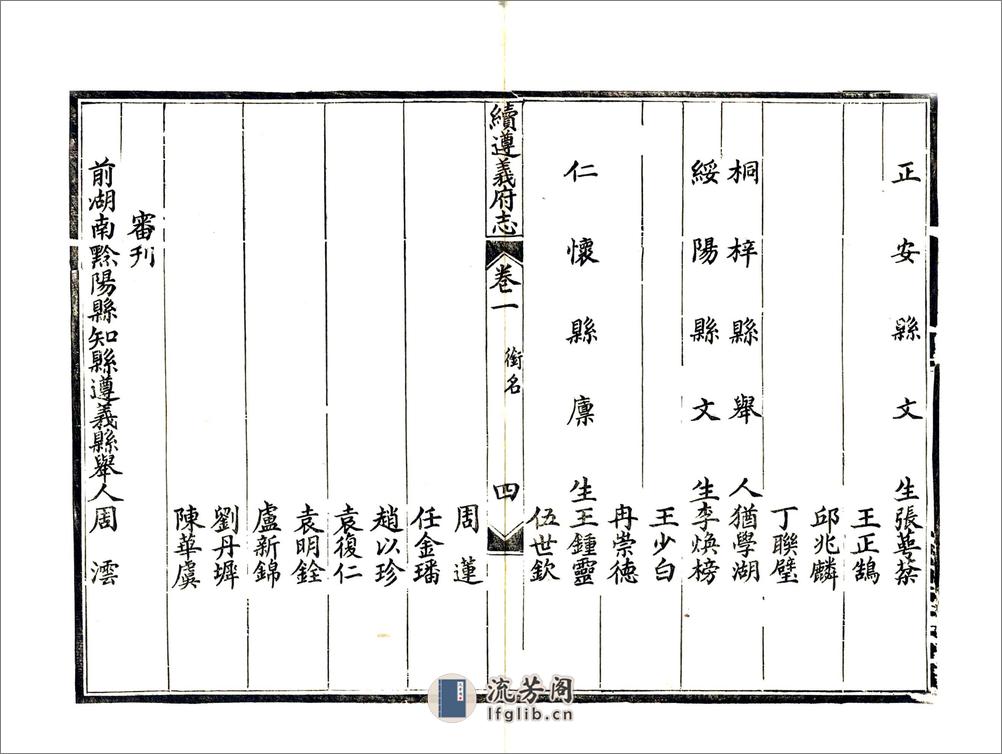 正安縣文生張蕚棻
王正鵠
邱兆麟
丁聯璧
桐梓縣舉人猶學湖
綏陽縣文生李煥榜
王少白
冉崇德
仁懷縣廩生王鍾靈
伍世欽
續遵義府志 卷一 銜名 四
周蓮
任金璠
趙以珍
袁復仁
袁明銓
盧新錦
劉丹墀
陳華虞
審刊
前湖南黔陽縣知縣遵義縣舉人周澐
流芳阁
lfglib.cn